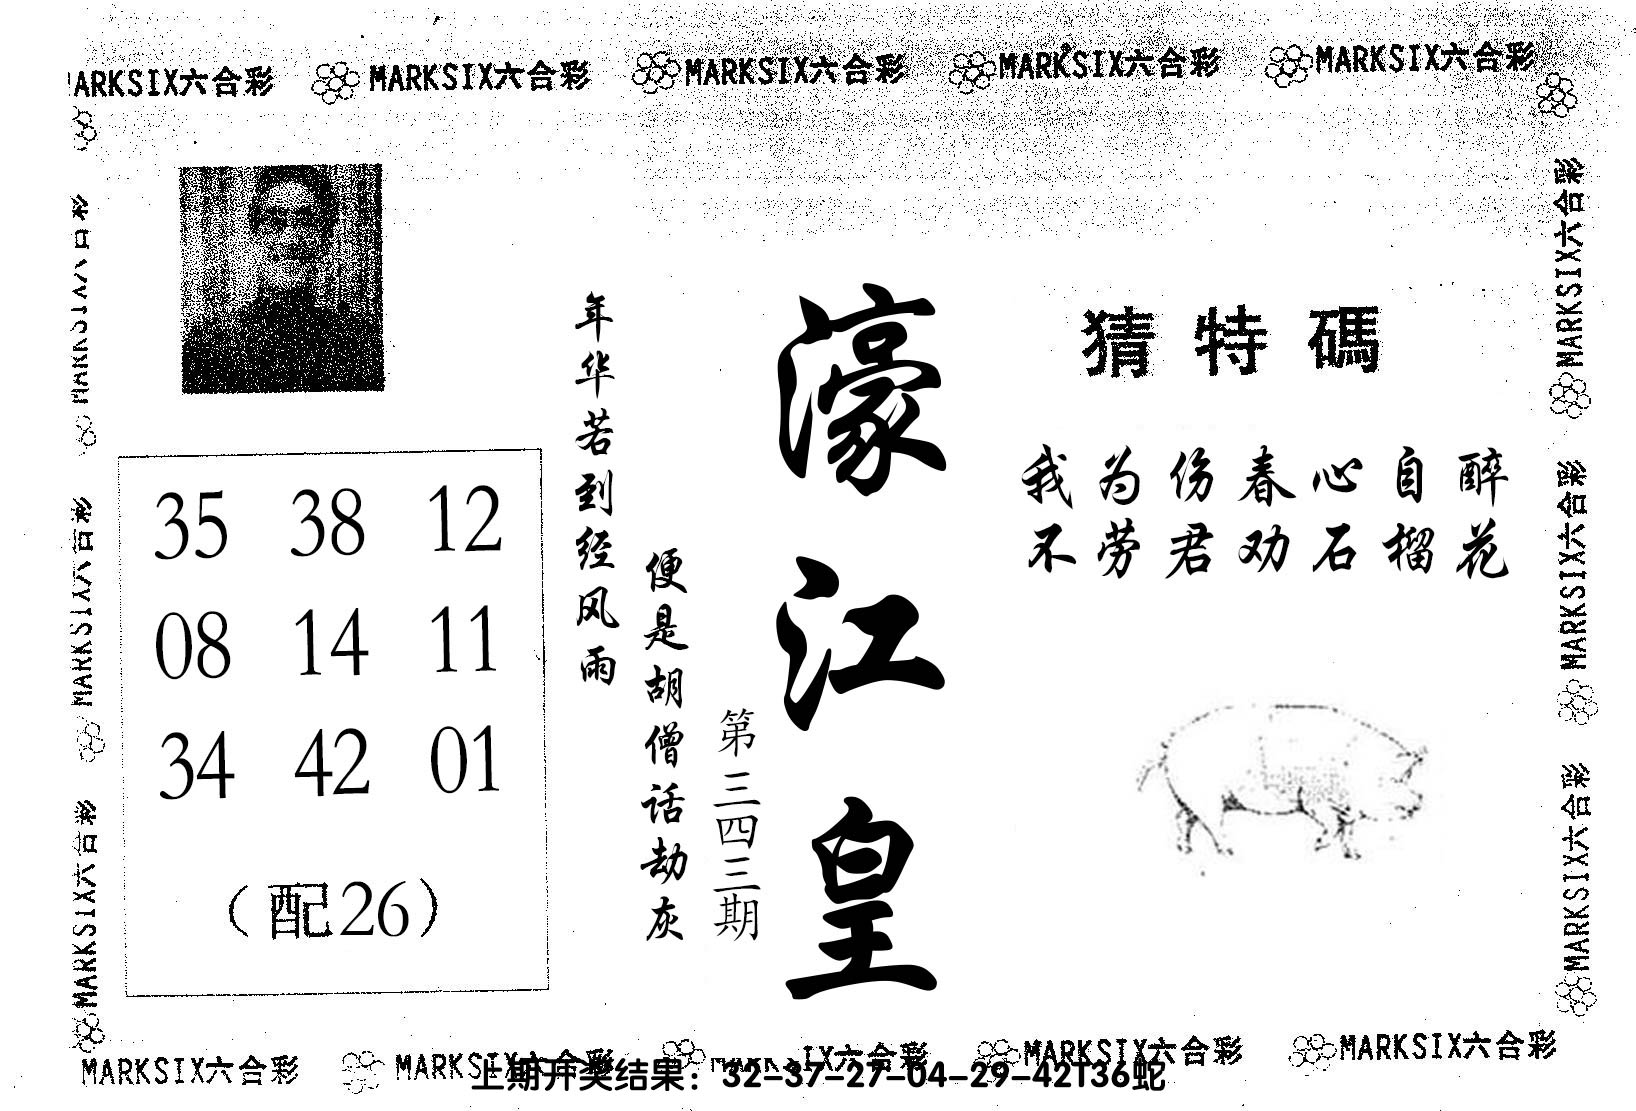 MARKSIX六合彩 MARKSIX六合彩 MARKSIX六合彩 MARKSIX六合彩 MARKSIX六合彩
MARKSIX六合彩
MARKSIX六合彩
MARKSIX六合彩
35 38 12
08 14 11
34 42 01
（配26）
年华若到经风雨
便是胡僧话劫灰
第三四三期
濠江皇
猜特碼
我为伤春心自醉
不劳君劝石榴花
MARKSIX六合彩
MARKSIX六合彩
MARKSIX六合彩
MARKSIX六合彩 MARKSIX六合彩 MARKSIX六合彩 MARKSIX六合彩 MARKSIX六合彩
上期开奖结果：32-37-27-04-29-42T36蛇